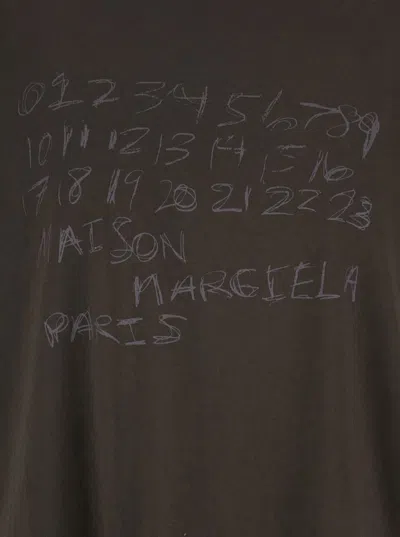 0 1 2 3 4 5 6 7 8 9
10 11 12 13 14 15 16
17 18 19 20 21 22 23
MAISON
MARGIELA
PARIS